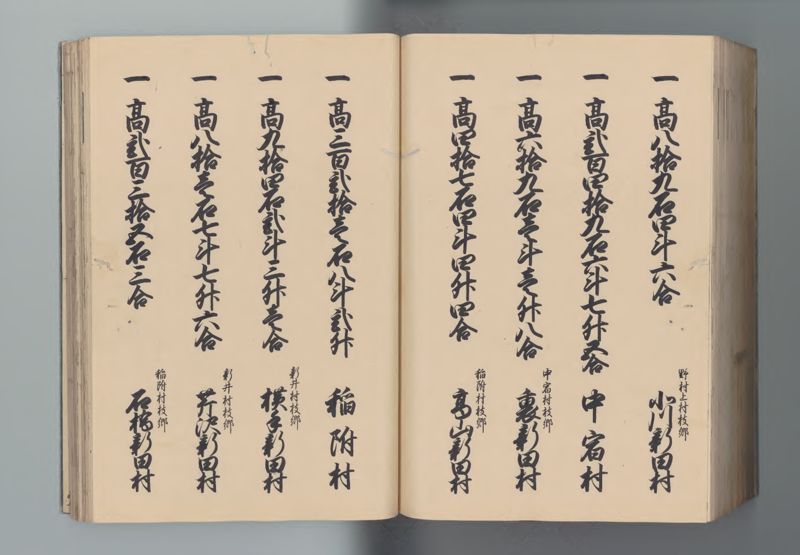 一 高八拾九石四斗六合
野村上村枝郷
小川新田村
一 高弐百四拾九石六斗七升五合 中宿村
一 高六拾九石壱斗壱升八合
中宿村枝郷
裏新田村
一 高四拾七石四斗四升四合
稲附村枝郷
高山新田村
一 高三百弐拾壱石八斗弐升 稲附村
一 高九拾四石弐斗三升壱合
新井村枝郷
横手新田村
一 高八拾壱石七斗七升六合
新井村枝郷
芹沢新田村
一 高弐百三拾五石三合
稲附村枝郷
新田村